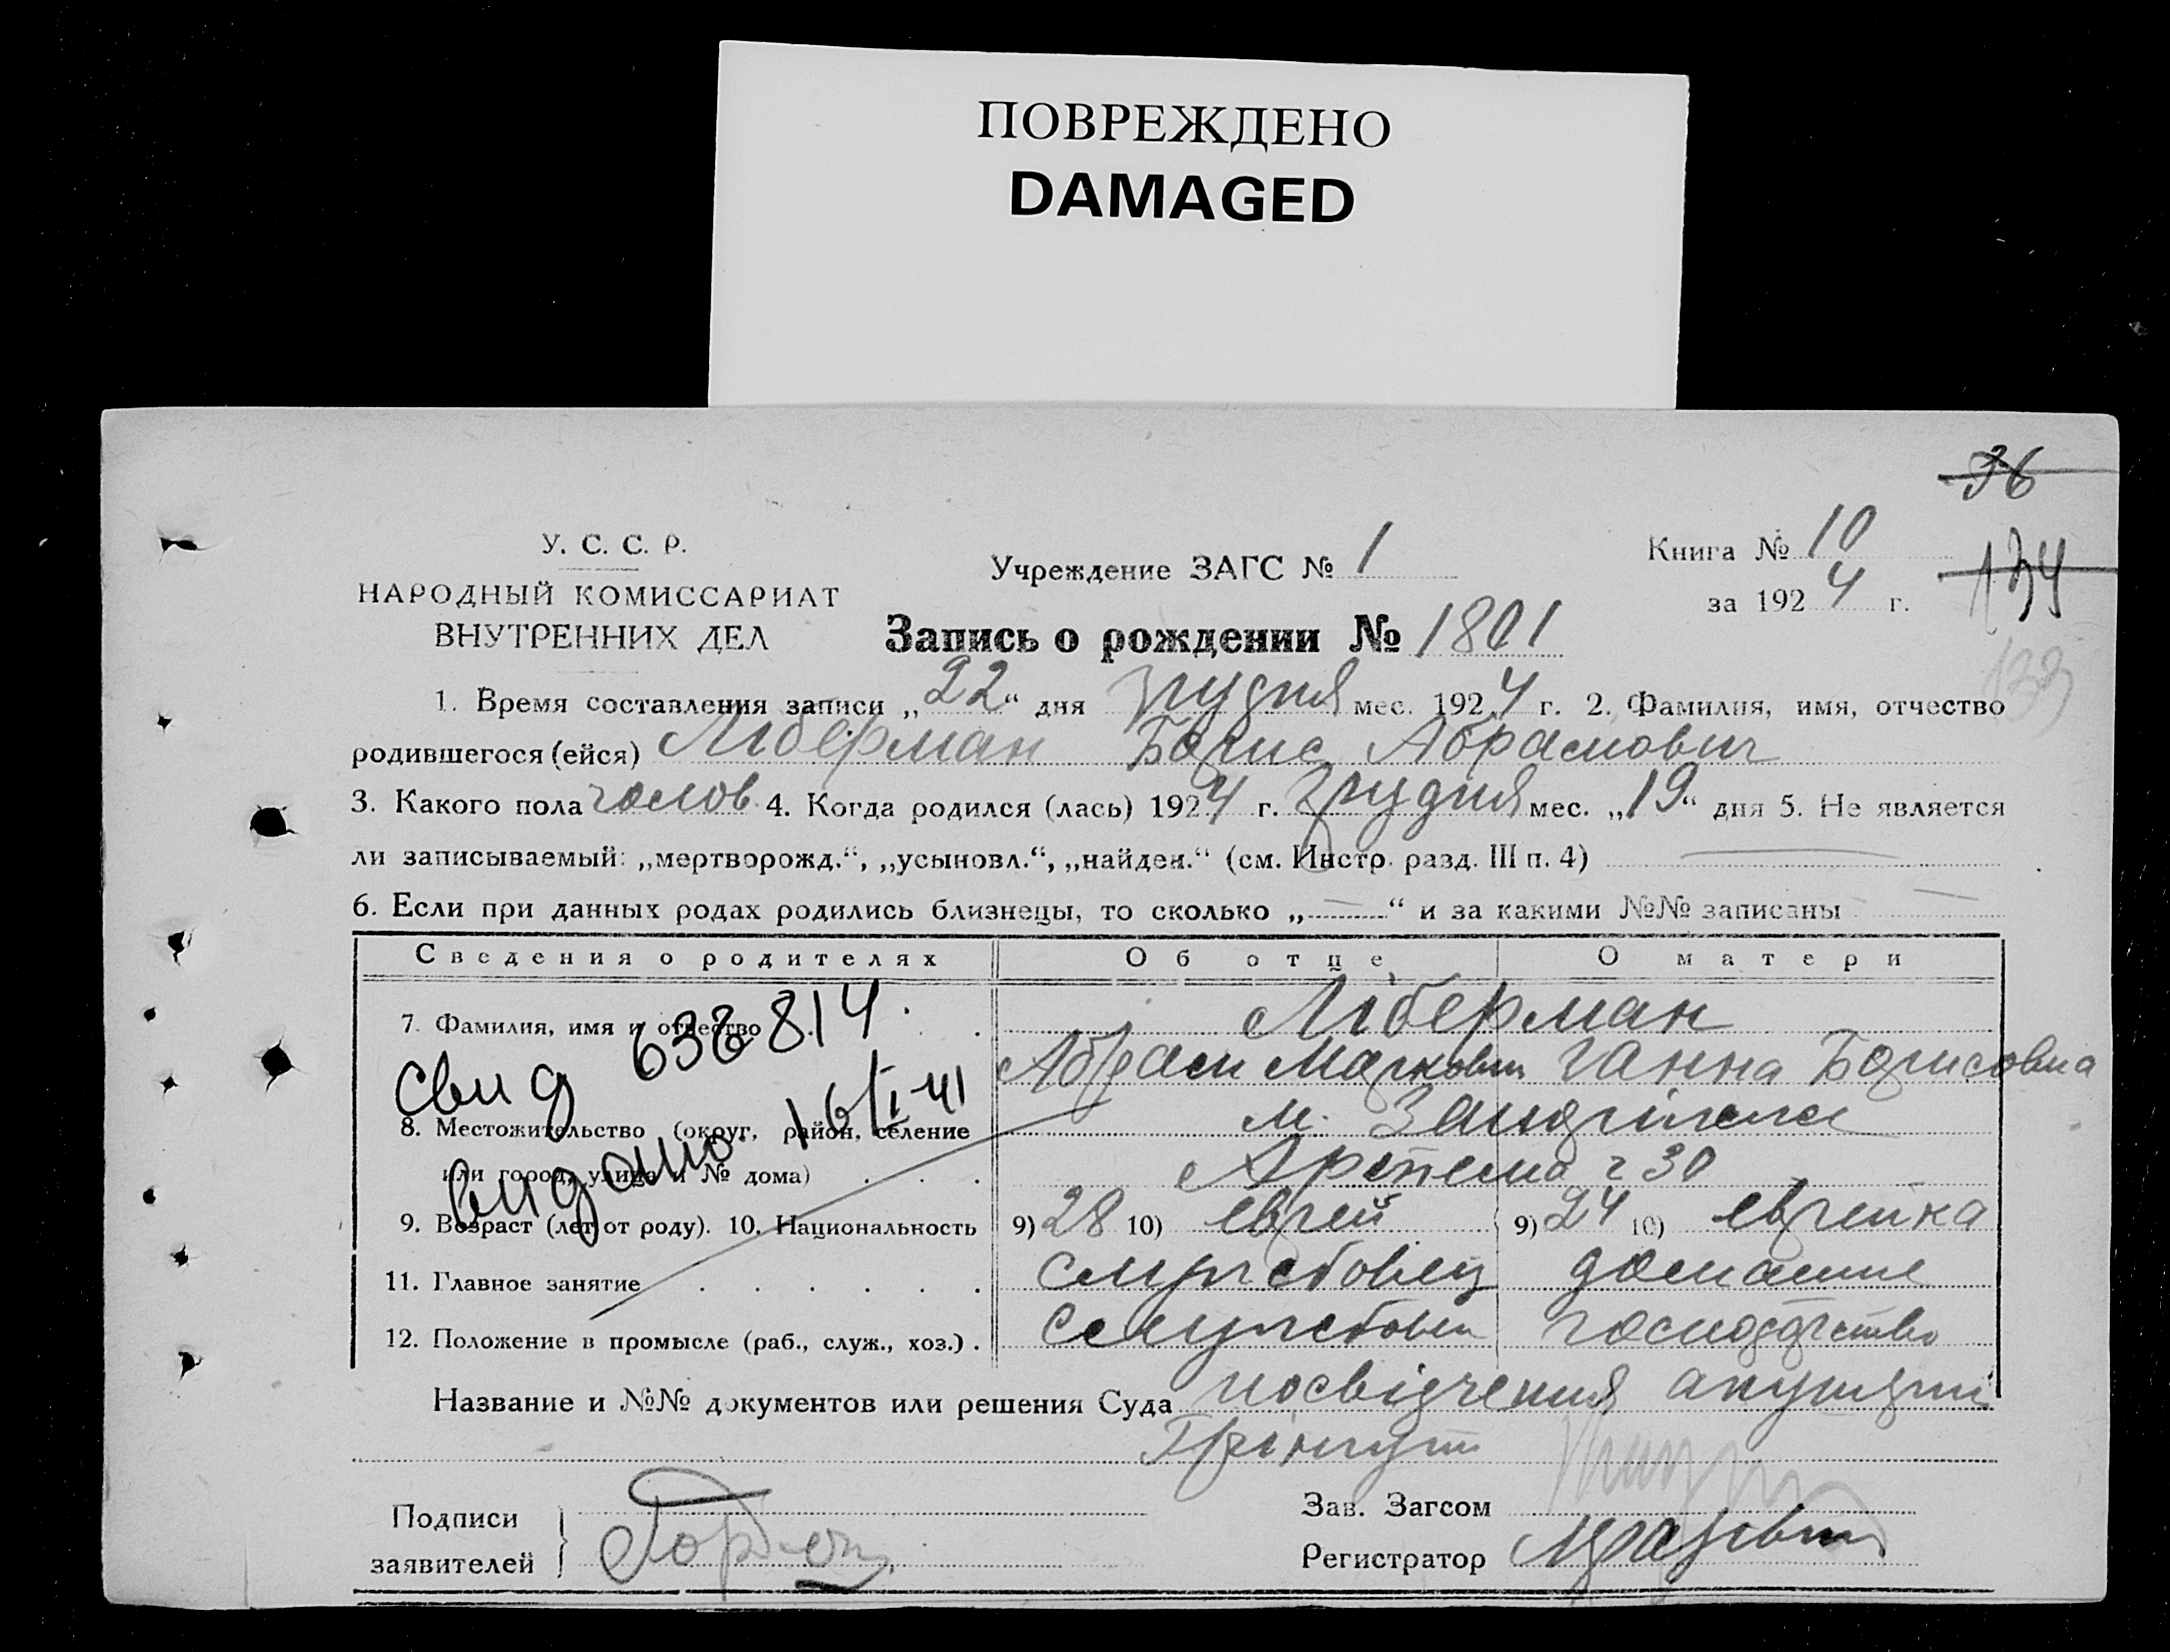 ПОВРЕЖДЕНО
DAMAGED
36
У. С. С. Р.
НАРОДНЫЙ КОМИССАРИАТ
ВНУТРЕННИХ ДЕЛ
Учреждение ЗАГС № 1
Книга № 10
за 1924 г.
134
Запись о рождении № 1801
1. Время составления записи „22“ дня грудня мес. 1924 г. 2. Фамилия, имя, отчество
родившегося (ейся) Ліберман Борис Абрамович
3. Какого пола чолов. 4. Когда родился (лась) 1924 г. грудня мес. „19“ дня 5. Не является
ли записываемый: „мертворожд.“, „усыновл.“, „найден.“ (см. Инстр. разд. III п. 4) —
6. Если при данных родах родились близнецы, то сколько „—“ и за какими №№ записаны —
Сведения о родителях Об отце О матери
7. Фамилия, имя и отчество Ліберман
Абрам Маркович Ганна Борисовна
свид 636814.
видано 16/I-41
8. Местожительство (округ, район, селение м.
или город, улица и № дома) Артема ч 30
9. Возраст (лет от роду). 10. Национальность 9) 28 10) еврей 9) 24 10) еврейка
11. Главное занятие службовец домашнє
12. Положение в промысле (раб., служ., хоз.) службовец господарство
Название и №№ документов или решения Суда посвідчення акушерки
Подписи
заявителей
Зав. Загсом
Регистратор